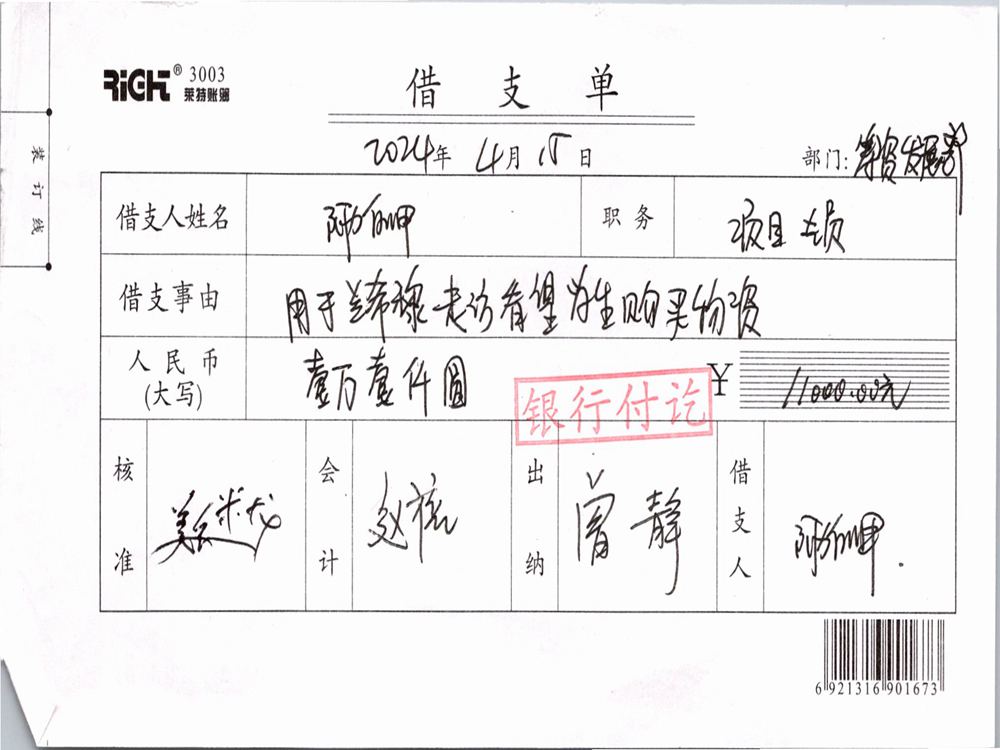 RiGHT® 3003
莱特账簿
借支单
2024年 4月 15日
部门: 筹资发展部
装订线
借支人姓名
职务 项目专员
借支事由 用于 走访看望 生购买物资
人民币 (大写) 壹万壹仟圆 ¥ 11000.00元
银行付讫
核准
会计 赵
出纳 曾静
借支人
6 921316 901673